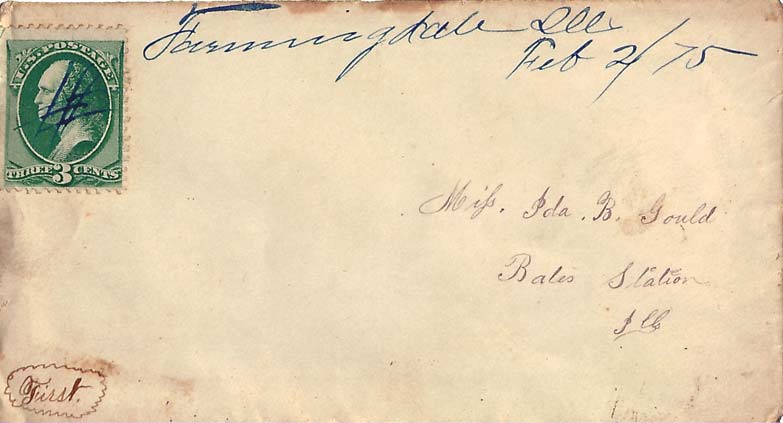 Farmingdale Ills
Feb 2/75
U.S. POSTAGE
THREE 3 CENTS
Miss. Ida. B. Gould
Bates Station
Ills
First.